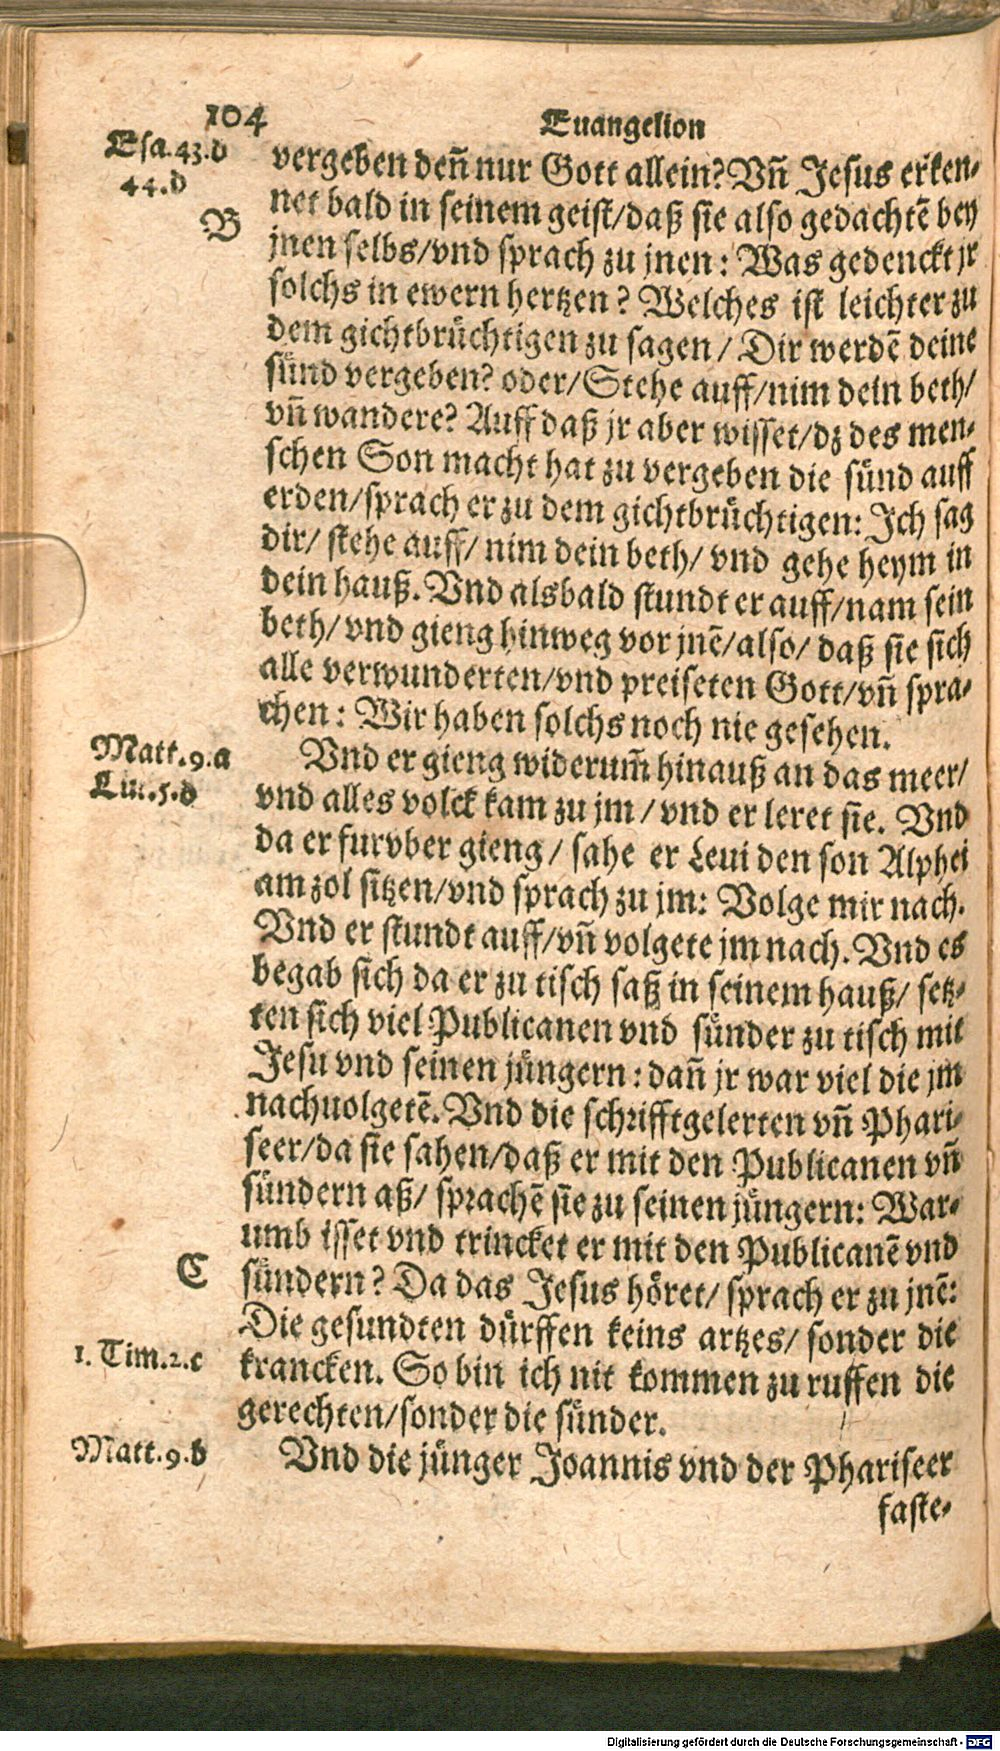 104
Euangelion
Esa.43.d
44.d
B
vergeben deñ nur Gott allein? Vñ Jesus erken-
net bald in seinem geist/daß sie also gedachtẽ bey
jnen selbs/vnd sprach zu jnen: Was gedenckt jr
solchs in ewern hertzen? Welches ist leichter zu
dem gichtbrüchtigen zu sagen/ Dir werdẽ deine
sünd vergeben? oder/Stehe auff/nim dein beth/
vñ wandere? Auff daß jr aber wisset/dz des men-
schen Son macht hat zu vergeben die sünd auff
erden/sprach er zu dem gichtbrüchtigen: Ich sag
dir/ stehe auff/ nim dein beth/ vnd gehe heym in
dein hauß. Vnd alsbald stundt er auff/nam sein
beth/vnd gieng hinweg vor jnẽ/also/ daß sie sich
alle verwunderten/vnd preiseten Gott/vñ spra-
chen: Wir haben solchs noch nie gesehen.
Matt.9.a
Luc.5.d
Vnd er gieng widerum̃ hinauß an das meer/
vnd alles volck kam zu jm/vnd er leret sie. Vnd
da er furvber gieng/ sahe er Leui den son Alphei
am zol sitzen/vnd sprach zu jm: Volge mir nach.
Vnd er stundt auff/vñ volgete jm nach. Vnd es
begab sich da er zu tisch saß in seinem hauß/ setz-
ten sich viel Publicanen vnd sünder zu tisch mit
Jesu vnd seinen jüngern: dañ jr war viel die jm
nachuolgetẽ. Vnd die schrifftgelerten vñ Phari-
seer/da sie sahen/daß er mit den Publicanen vñ
sündern aß/ sprachẽ sie zu seinen jüngern: War-
umb isset vnd trincket er mit den Publicanẽ vnd
C
sündern? Da das Jesus höret/ sprach er zu jnẽ:
Die gesundten dürffen keins artzes/ sonder die
1. Tim.2.c
krancken. So bin ich nit kommen zu ruffen die
gerechten/sonder die sünder.
Matt.9.b
Vnd die jünger Joannis vnd der Phariseer
faste-
Digitalisierung gefördert durch die Deutsche Forschungsgemeinschaft - DFG